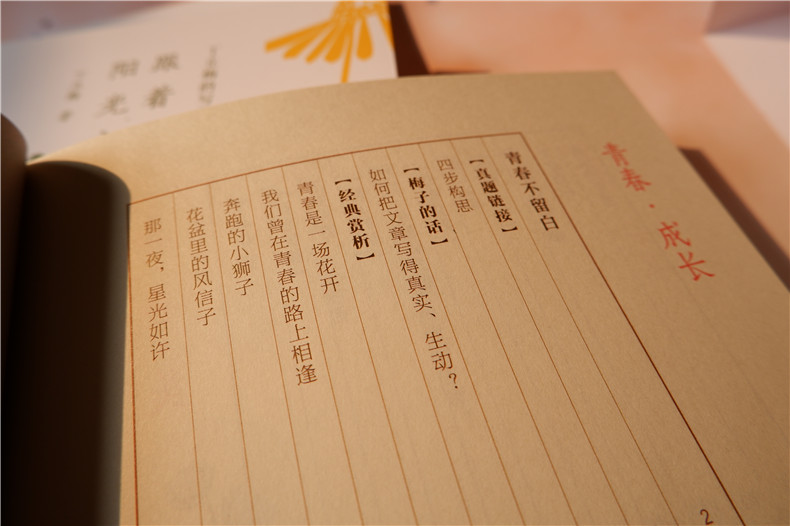 青春·成长
青春不留白
【真题链接】
四步构思
【梅子的话】
如何把文章写得真实、生动？
【经典赏析】
青春是一场花开
我们曾在青春的路上相逢
奔跑的小狮子
花盆里的风信子
那一夜，星光如许
2